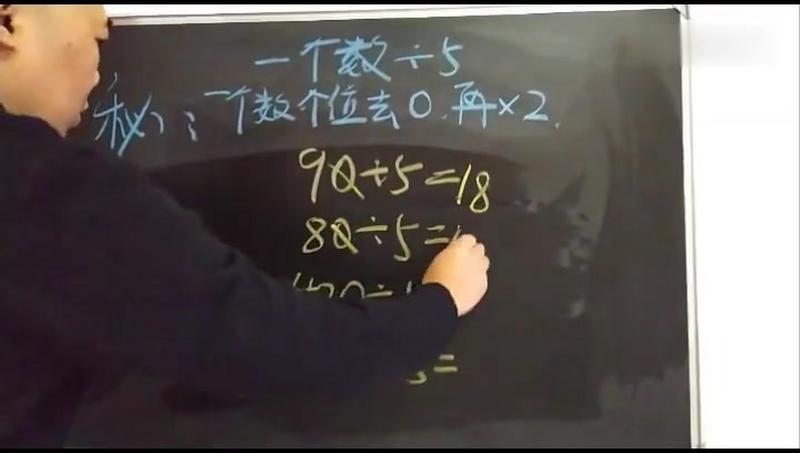 一个数÷5
秘:一个数个位去0.再×2.
90÷5=18
80÷5=
0÷
=